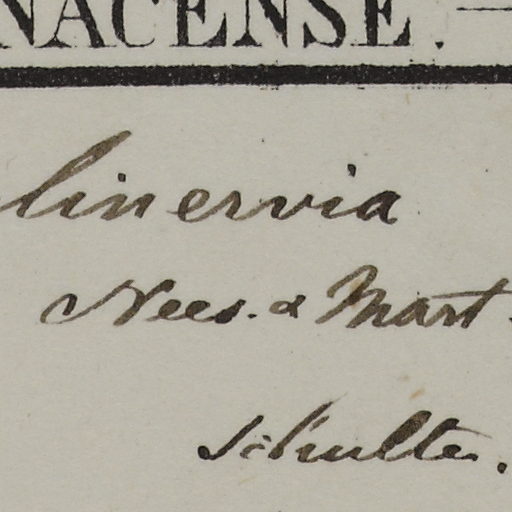 NACENSE.—
linervia
Nees. & Mart.
Schultes.